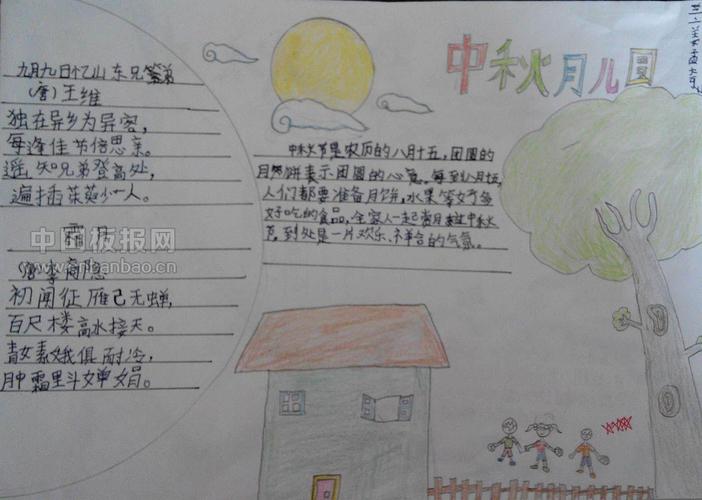 中秋月儿圆
九月九日忆山东兄弟
(唐)王维
独在异乡为异客,
每逢佳节倍思亲。
遥知兄弟登高处,
遍插茱萸少一人。
霜月
(唐)李商隐
初闻征雁已无蝉,
百尺楼高水接天。
青女素娥俱耐冷,
月中霜里斗婵娟。
中秋节是农历的八月十五,团圆的
月饼表示团圆的心意。每到八月十五,
人们都要准备月饼,水果等好多
好吃的食品,全家人一起赏月过中秋
节,到处是一片欢乐、祥合的气氛。
中国板报网